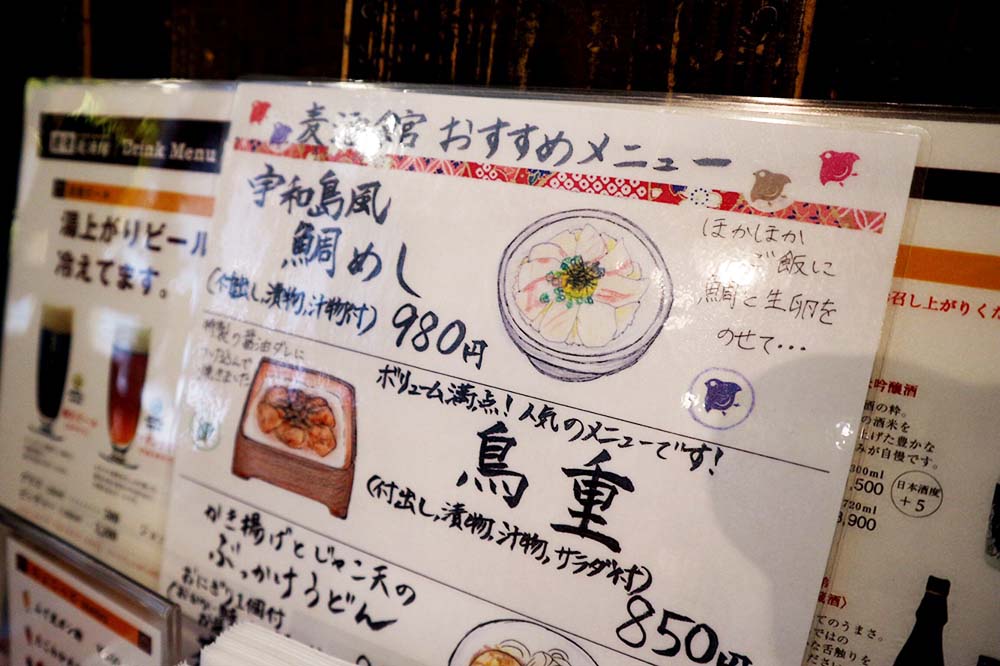 Drink Menu
湯上がりビール
冷えてます。
麦酒館 おすすめメニュー
宇和島風
鯛めし
(付出し,漬物,汁物付)
980円
ほかほか
ご飯に
鯛と生卵を
のせて...
特製の醤油ダレに
つけ込んで
焼きました
ボリューム満点!人気のメニューです!
鳥重
(付出し,漬物,汁物,サラダ付)
850円
かき揚げとじゃこ天の
ぶっかけうどん
おにぎり1個付
召し上がりくだ
吟醸酒
酒の粋。
の酒米を
上げた豊かな
みが自慢です。
300ml
,500
720ml
3,900
日本酒度
+5
醸酒〉
てのうまさ。
では の
な舌触りを
ださい